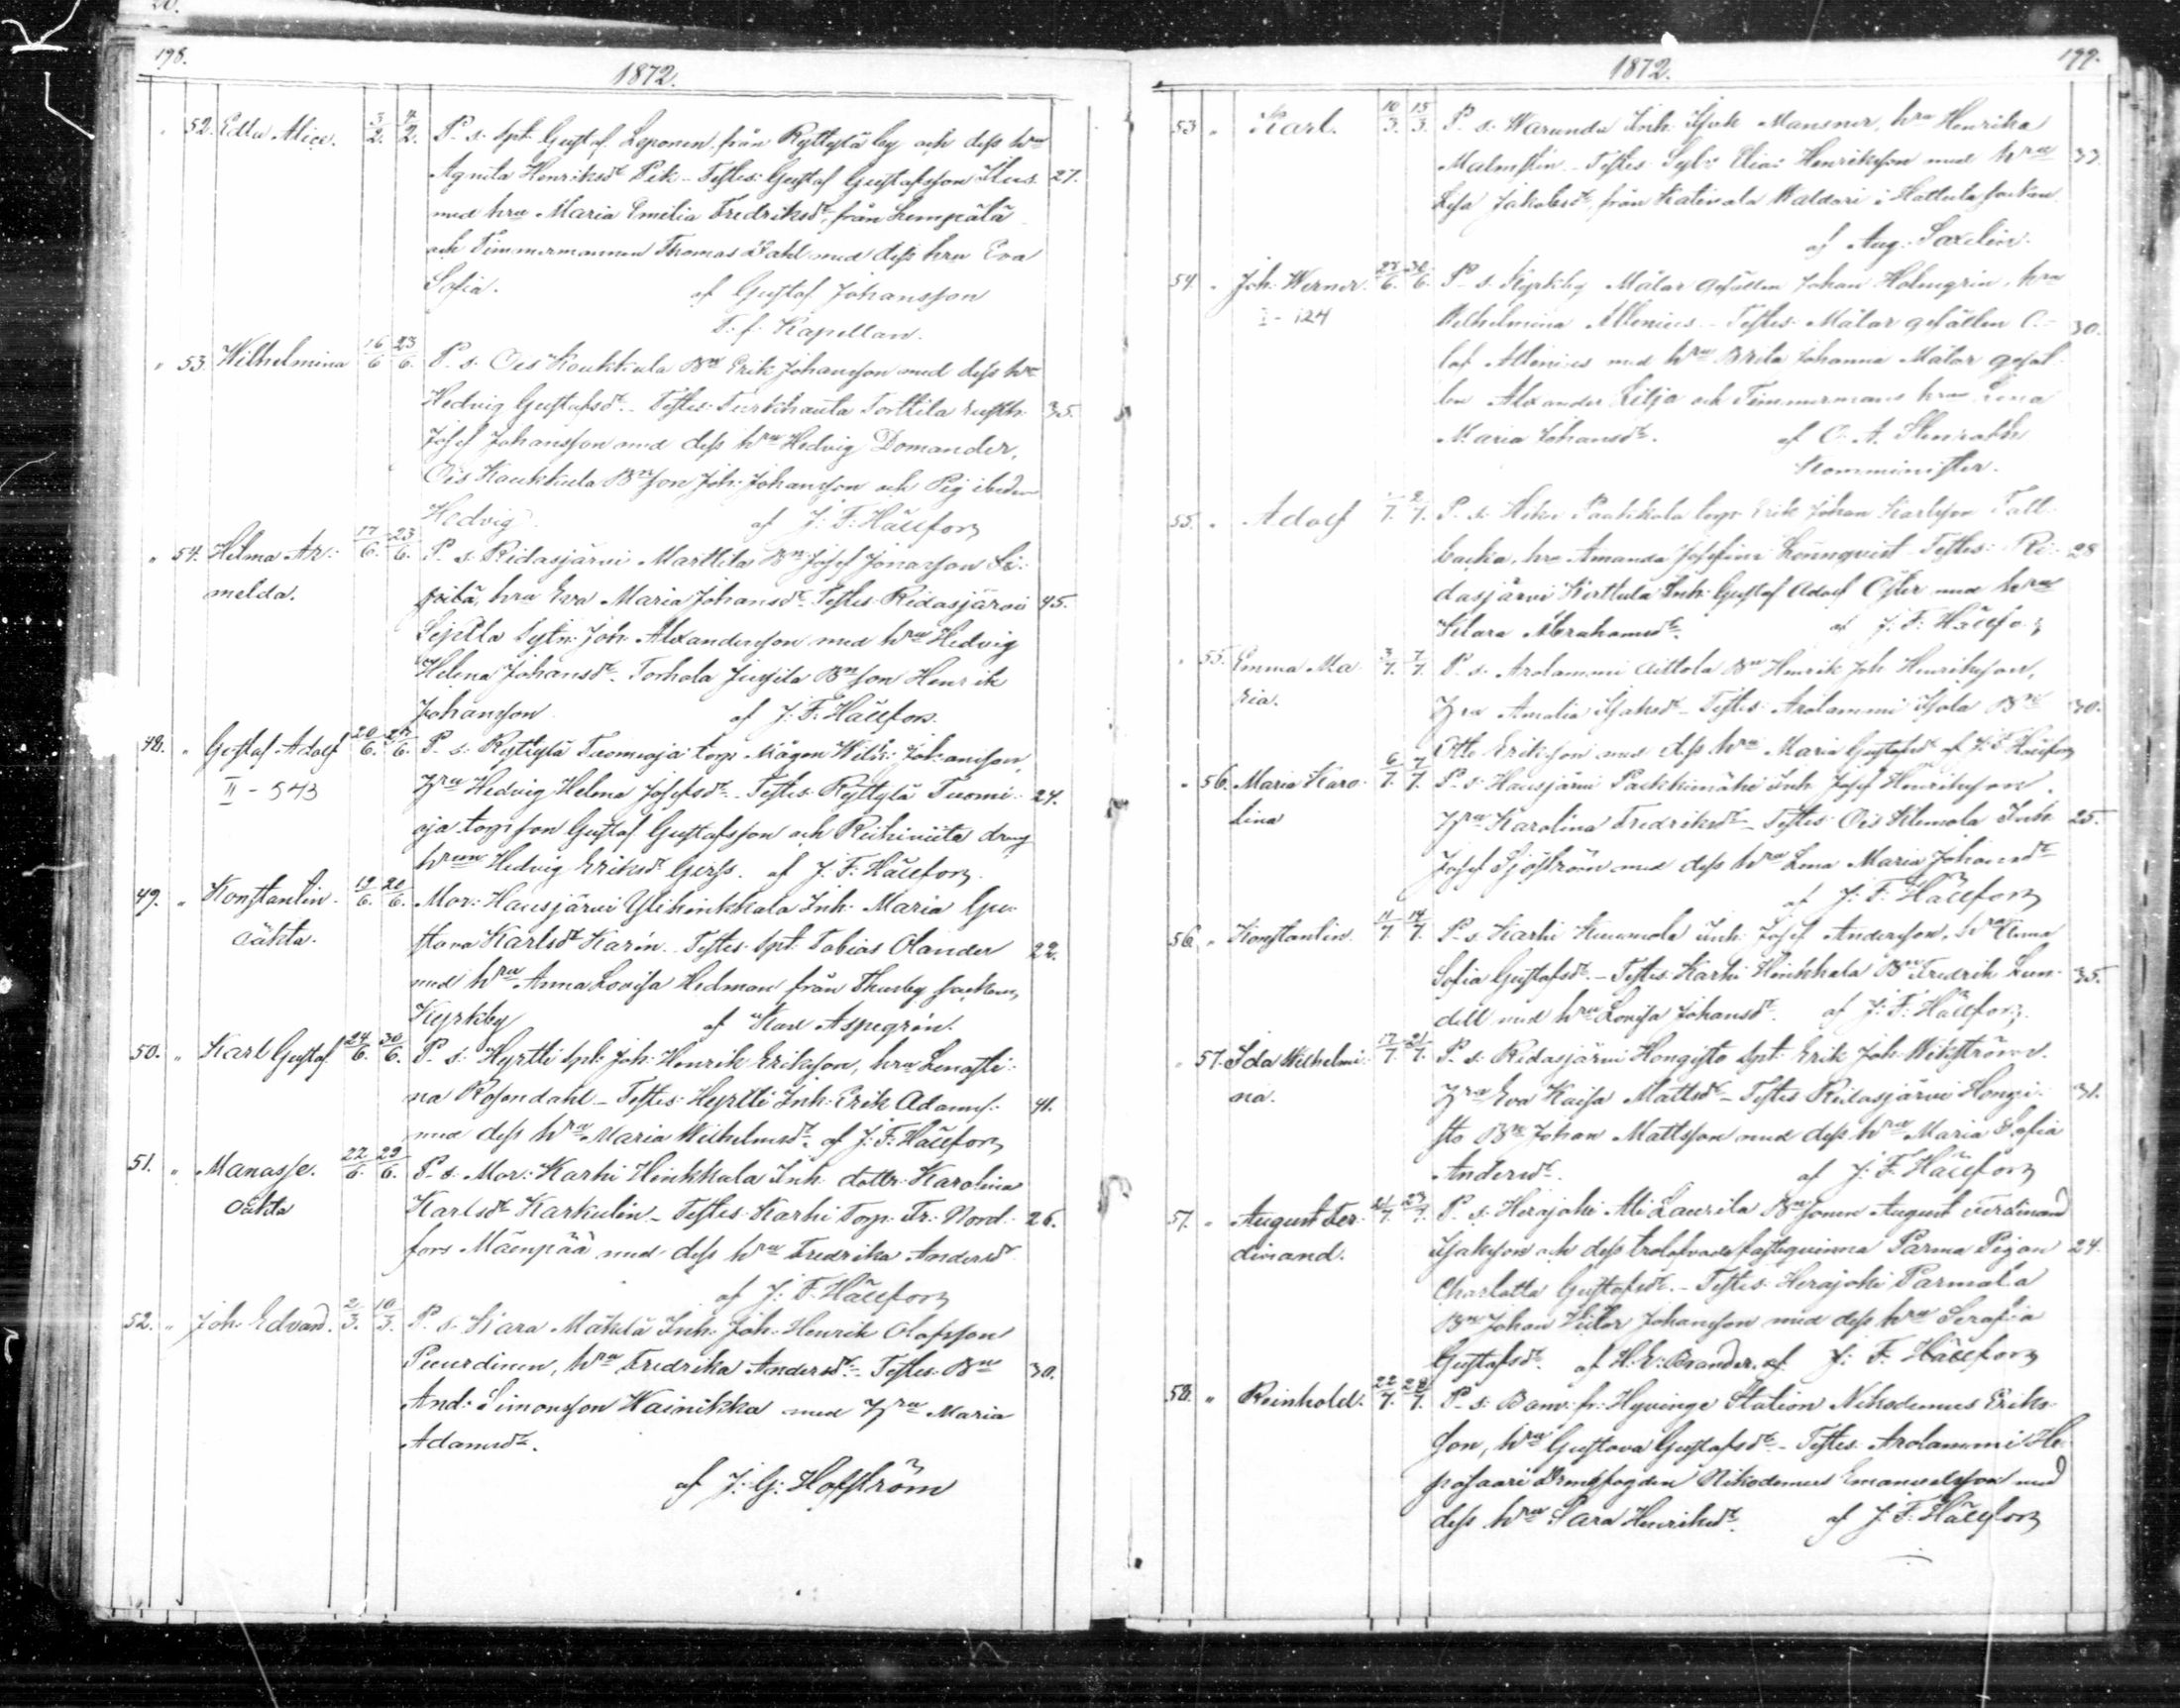 198.
1872.
" 52. Edla Alice. 3/2. 4/2. P. s. Spt. Gustaf Leponen från Ryttylä by och dess hru
Agneta Henriksdr Pik - Testes: Gustaf Gustafsson 27.
med hru Maria Emilia Fredriksdr från Lempälä
och Timmermannen Thomas Dahl med dess hru Eva
Sofia. af Gustaf Johansson
T. f. Kapellan.
" 53. Wilhelmina 16/6 23/6. P. s. Ois Koukkula Bn Erik Johansson med dess hru
Hedvig Gustafsdr. - Testes: Turkhauta Torttila 35.
Josef Johansson med dess hru Hedvig Domander,
Ois Koukkula Bnson Joh: Johansson och Pig ibidem
Hedvig. af J. F. Hällfors
" 54. Hilma Ar- 17/6. 23/6. P. s. Ridasjärvi Marttila Bn Josef Jonasson
melda. hru Eva Maria Johansdr. Testes: Ridasjärvi 45.
Seppälä Sytn: Joh: Alexandersson med hru Hedvig
Helena Johansdr. Torhola Jussila Bnson Henrik
Johansson af J. F. Hällfors.
48. " Gustaf Adolf 20/6. 24/6. P. s. Ryttylä Tuomioja torp. Mågen Wilh: Johansson,
II - 543 Hru Hedvig Helena Josefsdr. - Testes: Ryttylä Tuomi- 24.
oja torp. son Gustaf Gustafsson och Riihiviita dreng
hrun Hedvig Eriksdr Gerss. af J. F. Hällfors.
49. " Konstantin. 19/6. 20/6. Mor: Hausjärvi Ylihinkkala Inh: Maria Gu-
oäkta. stava Karlsdr Karin. Testes: Spt. Tobias Olander 22.
med hru Anna Lovisa Hedman från Thusby socken,
Kyrkby af Karl Aspegrén.
50. " Karl Gustaf 24/6. 30/6. P. s: Hyrtti Spt: Joh: Henrik Eriksson, hru Lenasti-
na Rosendahl - Testes: Hyrtti Inh: Erik Adamss: 41.
med dess hru Maria Wilhelmsdr. af J. F. Hällfors
51. " Manasse. 22/6. 29/6. P. s. Mor: Karhi Hinkkala Inh. dotter Karolina
oäkta Karlsdr Karkulin - Testes: Karhi Torp. Fr: Nord- 26.
fors Mäenpää med dess hru Fredrika Andersdr
af J. F. Hällfors
52. " Joh: Edvard. 2/3. 10/3. P. s. Kara Mäkelä Inh: Joh: Henrik Olofsson
Puurdinen, hru Fredrika Andersdr - Testes: Bn 30.
And: Simonsson Wainikka med Hru Maria
Adamsdr.
af J. G. Hofström
1872. 199.
53 " Karl. 10/3. 15/3. P. s. Warunda Inh: Isak Mansner, hru Henrika
Malmstén - Testes: Sytn: Elias Henriksson med hru 33.
Lisa Jakobsdr från Katinala Waldari i Hattula socken.
af Aug. Saxelin.
54. " Joh: Werner. 28/6. 30/6. P. s. Kyrkby Målar gesällen Johan Holmgrén, hru
I - 124 Wilhelmina Allenius - Testes: Målar gesällen O- 30.
lof Allenius med hru Brita Johanna Målar gesäl-
len Alexander Lilja och Timmermans hru Lena
Maria Johansdr. af C. A. Stenroth
Komminister.
55. " Adolf 1/7. 2/7. P. s. Hikiä Paakkola torp. Erik Johan Karlsson Tall-
backa, hru Amanda Josefina Lönnqvist - Testes: Ri- 28
dasjärvi Kerttula Inh: Gustaf Adolf Öster med hru
Klara Abrahamsdr. af J. F. Hällfors
" 55. Emma Ma- 3/7. 7/7. P. s. Arolammi Aittola Bn Henrik Joh Henriksson,
ria. Hru Amalia Isaksdr - Testes: Arolammi Isola Bn 30.
Otto Eriksson med dess hru Maria Gustafsdr af J. F. Hällfors
" 56. Maria Karo- 6/7. 7/7. P. s. Hausjärvi Paikkimäki Inh Josef Henriksson.
lina Hru Karolina Fredriksdr - Testes: Ois Klemola Inh 25.
Josef Sjöström med dess hru Lena Maria Johansdr
af J. F. Hällfors
56. " Konstantin. 11/7. 14/7. P. s. Karhi Knuunola Inh: Josef Andersson, hru Anna
Sofia Gustafsdr. - Testes: Karhi Hinkkala Bn Fredrik Lun- 35.
dell med hru Lovisa Johansdr. af J. F. Hällfors.
" 57. Ida Wilhelmi- 17/7. 21/7. P. s. Ridasjärvi Hongisto Spt: Erik Joh: Wikström.
na. Hru Eva Kaisa Mattsdr - Testes: Ridasjärvi Hongi- 31.
sto Bn Johan Mattsson med dess hru Maria Sofia
Andersdr. af J. F. Hällfors
57. " August Fer- 21/7. 23/7. P. s. Herajoki Ali Laurila Bnsonen August Ferdinand
dinand. Isaksson och dess trolofvade fästeqvinna Parma Pigan 24.
Charlotta Gustafsdr. - Testes: Herajoki Parmala
Bn Johan Viktor Johansson med dess hru Serafia
Gustafsdr. af H. E. Brander. af J. F. Hällfors
58. " Reinhold. 22/7. 28/7. P. s: Banv: fr: Hyvinge Station Nikodemus Eriks-
son, hru Gustava Gustafsdr. - Testes: Arolammi He-
posaari Drengfogden Nikodemus Emanuelsson med
dess hru Sara Henriksdr. af J. F. Hällfors